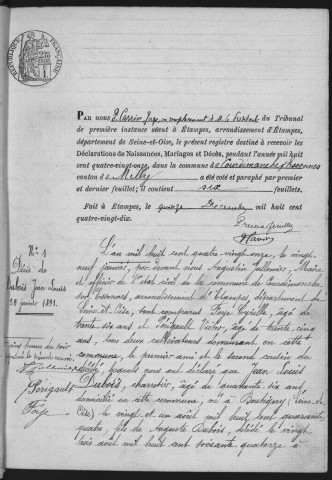 RÉPUBLIQUE FRANÇAISE
PAR NOUS Carrier Juge, remplacement de M. le Président du Tribunal
de première instance séant à Étampes, arrondissement d'Étampes,
département de Seine-et-Oise, le présent registre destiné à recevoir les
Déclarations de Naissances, Mariages et Décès, pendant l'année mil huit
cent quatre-vingt-onze, dans la commune de Courdimanche s/ Essonnes
canton de Milly a été coté et paraphé par premier et
dernier feuillet; il contient six feuillets.
Fait à Étampes, le quinze Décembre mil huit cent
quatre-vingt-dix.
Premier feuillet
N° 1
Décès de
Dubois Jean Louis
29 janvier 1891.
L'an mil huit cent quatre vingt onze, le vingt
neuf janvier, par devant nous Augustin Maire
et officier de l'état civil de la commune de Courdimanche
sur Essonnes, arrondissement d'Étampes, département de
Seine et Oise, sont comparus Forge Cyrille, âgé de
trente six ans et Périgault Victor, âgé de trente cinq
ans, tous deux cultivateurs demeurant en cette
commune, le premier ami et le second cousin du
décédé, lesquels nous ont déclaré que Jean Louis
Dubois, charretier, âgé de quarante six ans,
domicilié en cette commune, né à Boutigny (Seine-et-
Oise) le vingt et un août mil huit cent quarante
quatre, fils de Auguste Dubois, décédé le vingt
trois août mil huit cent soixante quatorze à
Périgault
Forge